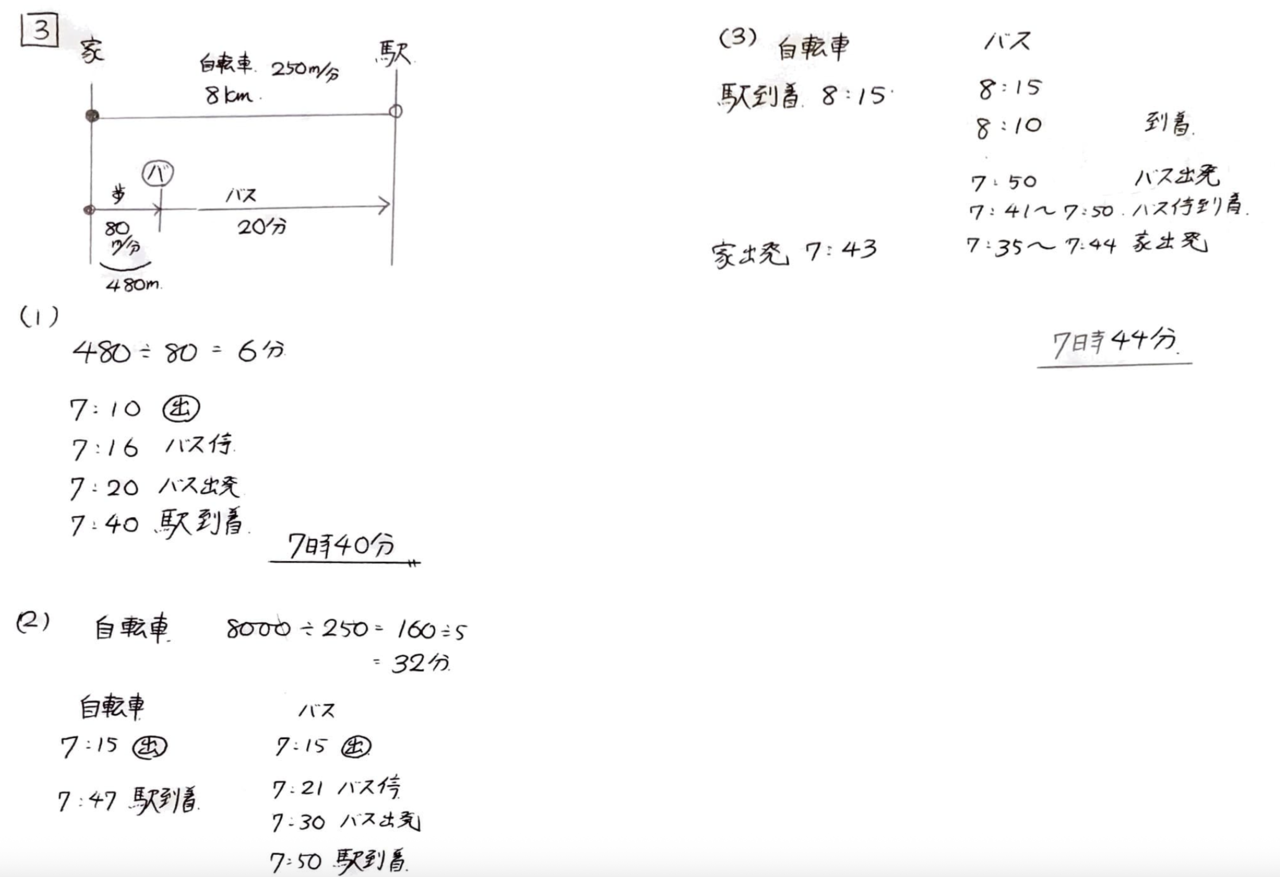 3
家
駅
自転車 250m/分
8km
バ
歩
バス
80
m/分
20分
480m
(1)
480÷80=6分
7:10 出
7:16 バス停
7:20 バス出発
7:40 駅到着
7時40分
(2) 自転車 8000÷250=160÷5
=32分
自転車 バス
7:15 出 7:15 出
7:47 駅到着 7:21 バス停
7:30 バス出発
7:50 駅到着
(3) 自転車 バス
駅到着 8:15 8:15
8:10 到着
7:50 バス出発
7:41〜7:50 バス停到着
家出発 7:43 7:35〜7:44 家出発
7時44分